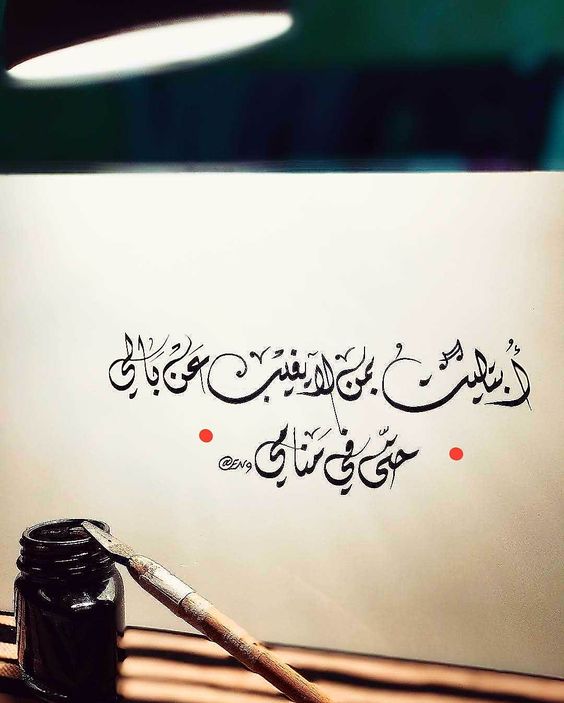 أُبتليتُ بمن لا يغيب عَنْ بَالي
حتّى في مَنامي
@EN9